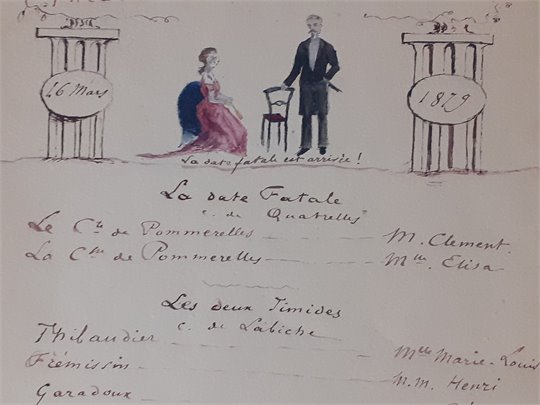 16 Mars
1879
La date fatale est arrivée !
La date Fatale
C. de Quatrelles
Le Cte de Pommerelles M. Clement.
La Ctsse de Pommerelles Mme Elisa
Les deux Timides
C. de Labiche
Thibaudier Mlle Marie-Louis
Frémissin M.M. Henri
Garadoux